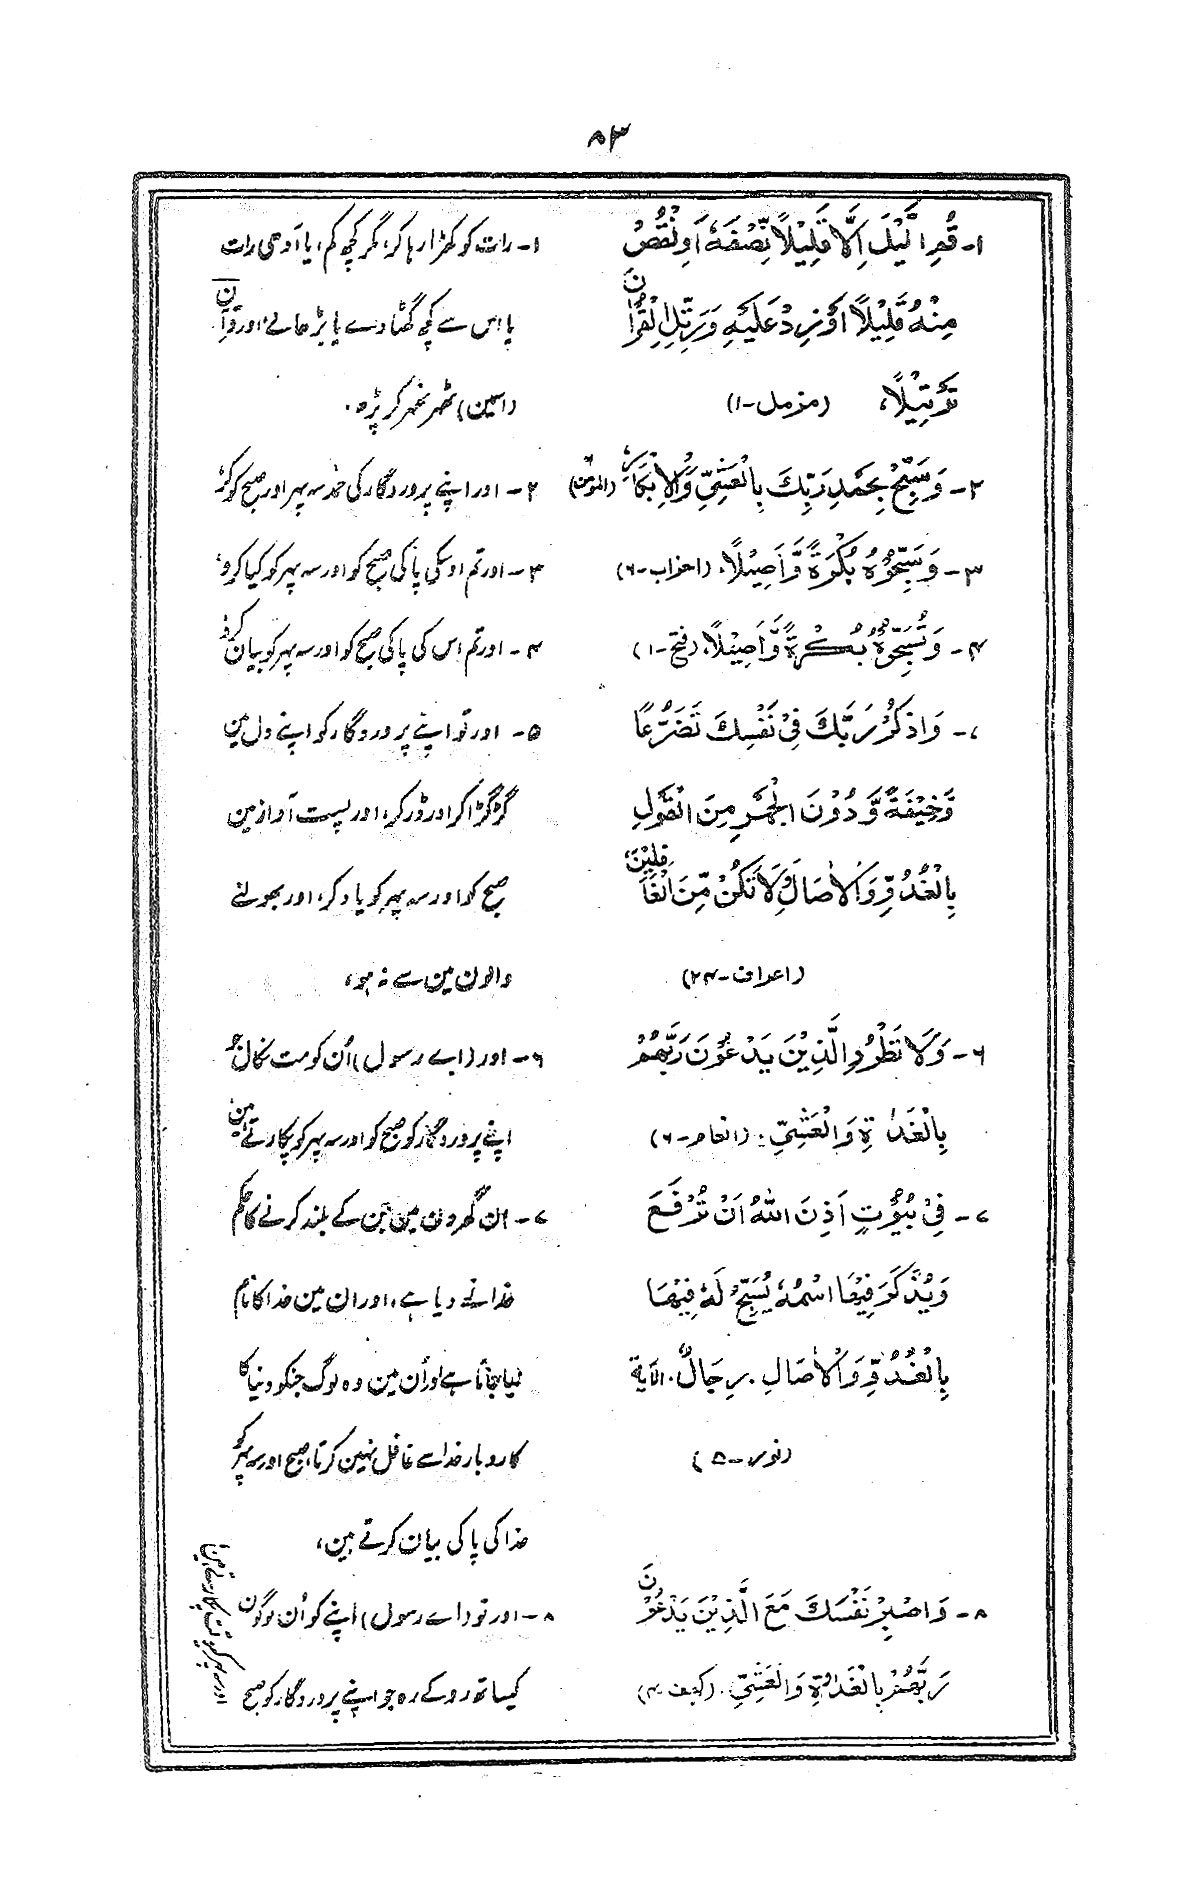 ۸۳
۱- قُمِ الَّیْلَ اِلَّا قَلِیْلًا نِّصْفَهٗ اَوِ نْقُصْ
مِنْهُ قَلِیْلًا اَوْ زِدْ عَلَیْهِ وَ رَتِّلِ الْقُرْاٰنَ
تَرْتِیْلًا، (مزمل-۱)
۱- رات کو کھڑا رہا کر، مگر کچھ کم، یا آدھی رات
یا اس سے کچھ گھٹا دے یا بڑھالے، اور قرآن
(اسمین) ٹھر ٹھر کر پڑہ.
۲- وَ سَبِّحْ بِحَمْدِ رَبِّكَ بِالْعَشِیِّ وَالْاِبْكَارِ، (المؤمن)
۲- اور اپنے پروردگار کی حمد سہ پہر اور صبح کو کر،
۳- وَ سَبِّحُوْهُ بُكْرَةً وَّ اَصِیْلًا. (احزاب-۶)
۳- اور تم اوسکی پاکی صبح کو اور سہ پہر کو کیا کرو،
۴- وَ تُسَبِّحُوْهُ بُكْرَةً وَّ اَصِیْلًا، (فتح-۱)
۴- اور تم اس کی پاکی صبح کو اور سہ پہر کو بیان کرو
۷- وَ اذْكُرْ رَبَّكَ فِیْ نَفْسِكَ تَضَرُّعًا
وَّ خِیْفَةً وَّ دُوْنَ الْجَهْرِ مِنَ الْقَوْلِ
بِالْغُدُوِّ وَ الْاٰصَالِ وَ لَا تَكُنْ مِّنَ الْغٰفِلِیْنَ،
(اعراف-۲۴)
۵- اور تو اپنے پروردگار کو اپنے دل مین
گڑگڑا کر اور ڈر کر، اور پست آواز مین
صبح کو اور سہ پہر کو یاد کر، اور بھولنے
والون مین سے نہ ہو،
۶- وَ لَا تَطْرُدِ الَّذِیْنَ یَدْعُوْنَ رَبَّهُمْ
بِالْغَدٰوةِ وَ الْعَشِیِّ. (انعام-۶)
۶- اور (اے رسول) اُن کو مت نکال جو
اپنے پروردگار کو صبح کو اور سہ پہر کو پکارتے ہین
۷- فِیْ بُیُوْتٍ اَذِنَ اللّٰهُ اَنْ تُرْفَعَ
وَ یُذْكَرَ فِیْهَا اسْمُهٗ یُسَبِّحُ لَهٗ فِیْهَا
بِالْغُدُوِّ وَ الْاٰصَالِ. رِجَالٌ. الآیة
(نور-۵)
۷- ان گھرون مین جن کے بلند کرنے کا حکم
خدا نے دیا ہے، اور ان مین خدا کا نام
لیا جاتا ہے اور اُن مین وہ لوگ جنکو دنیا کا
کاروبار خدا سے غافل نہین کرتا، صبح اور سہ پہر کو
خدا کی پاکی بیان کرتے ہین،
۸- وَ اصْبِرْ نَفْسَكَ مَعَ الَّذِیْنَ یَدْعُوْنَ
رَبَّهُمْ بِالْغَدٰوةِ وَ الْعَشِیِّ. (کهف-۴)
۸- اور تو (اے رسول) اپنے کو اُن لوگون
کیساتھ روکے رہ جو اپنے پروردگار کو صبح
اور سہ پہر کو پکارتے ہین،